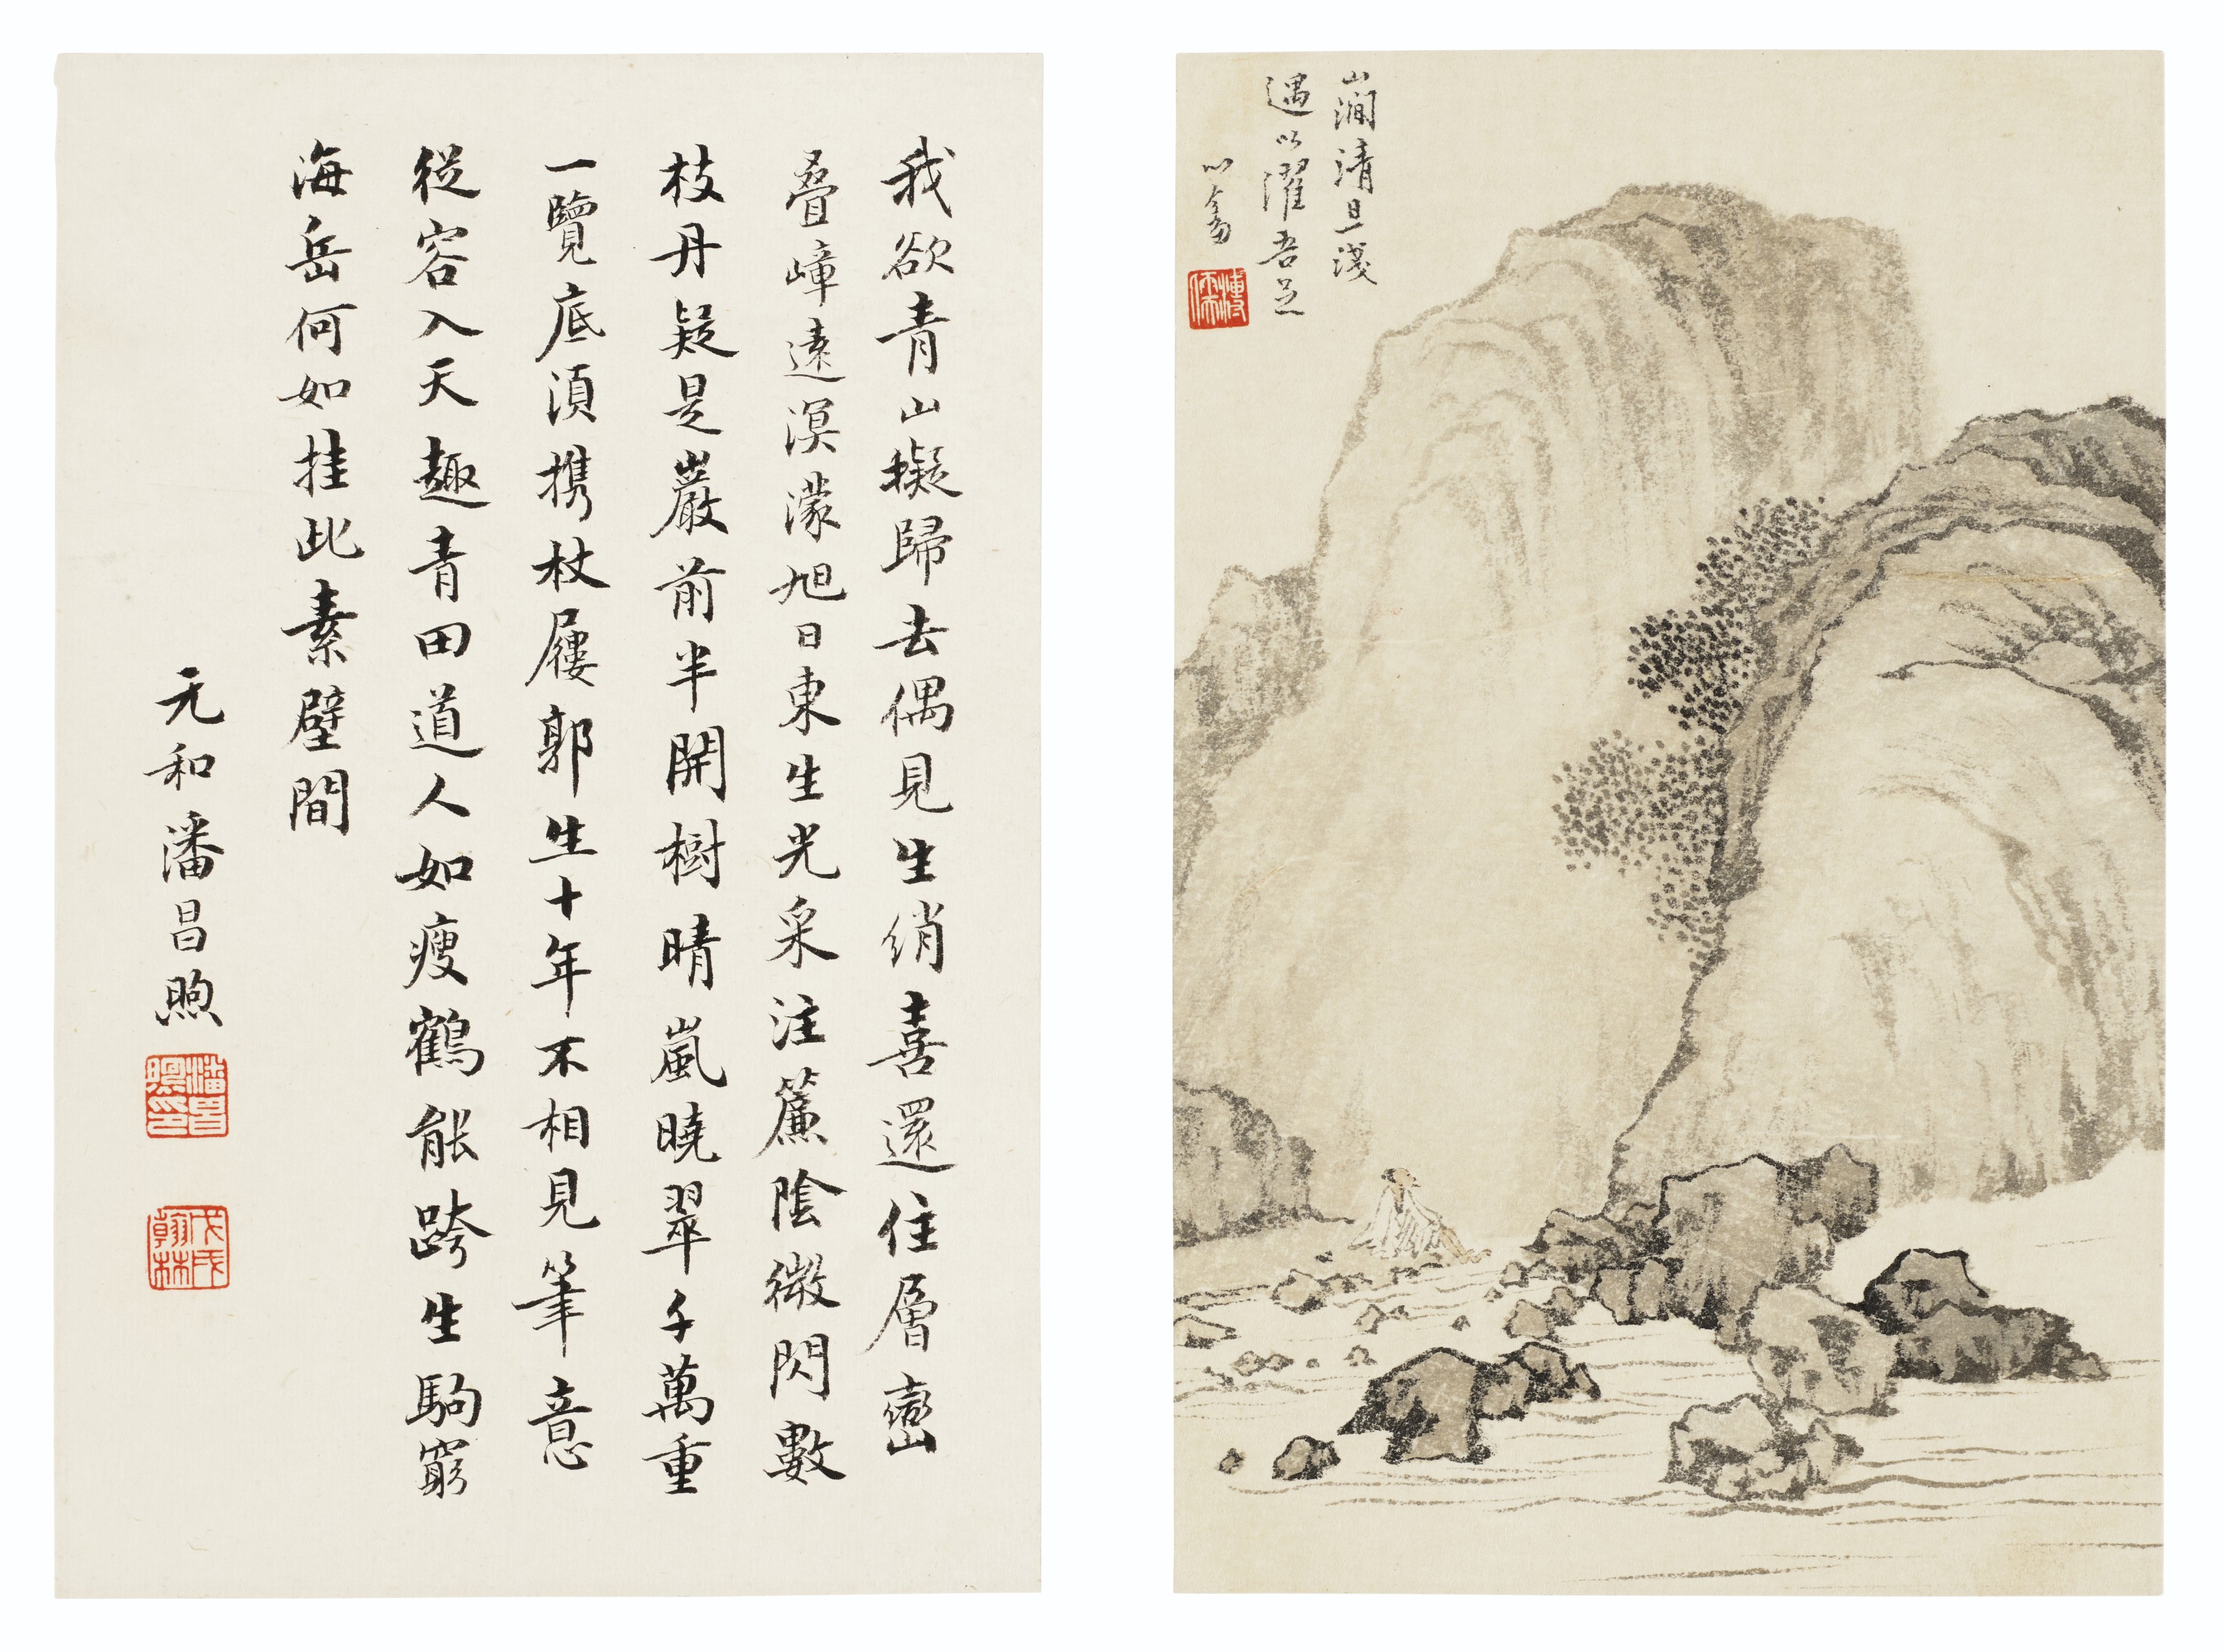 山澗清且淺
遇以濯吾足
心畬
溥儒
我欲青山擬歸去偶見生綃喜還住層巒
叠嶂遠溟濛旭日東生光采注簾陰微閃數
枝丹疑是巖前半開樹晴嵐曉翠千萬重
一覽底須携杖屨郭生十年不相見筆意
從容入天趣青田道人如瘦鶴能跨生駒窮
海岳何如挂此素壁間
元和潘昌煦
潘昌煦印
戊戌翰林